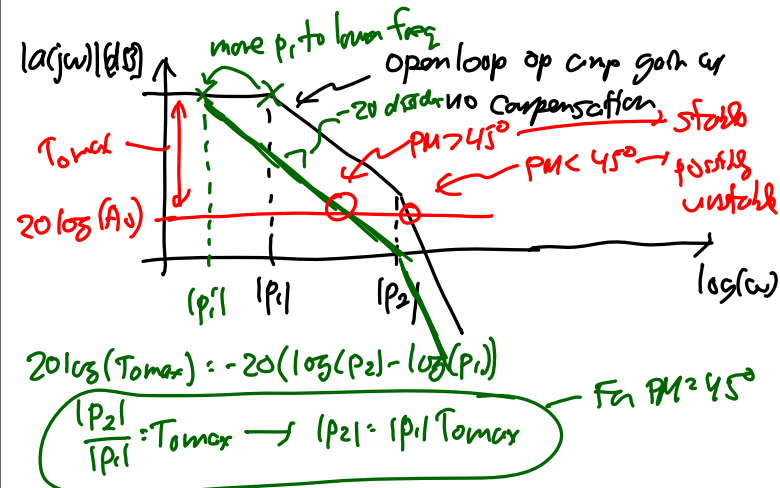 |a(jω)|[dB]
move p₁ to lower freq
open loop op amp gain w/
no compensation
-20 dB/dec
PM>45° → stable
PM<45° → possibly
unstable
Tomax
20log(A₀)
|p₁'| |p₁| |p₂| log(ω)
20log(Tomax) = -20(log(p₂) - log(p₁))
|p₂|/|p₁| = Tomax → |p₂| = |p₁| Tomax
For PM=45°